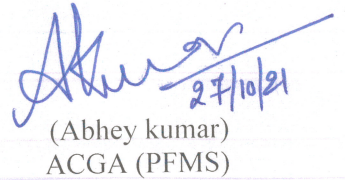 AKumar
27/10/21
(Abhey kumar)
ACGA (PFMS)